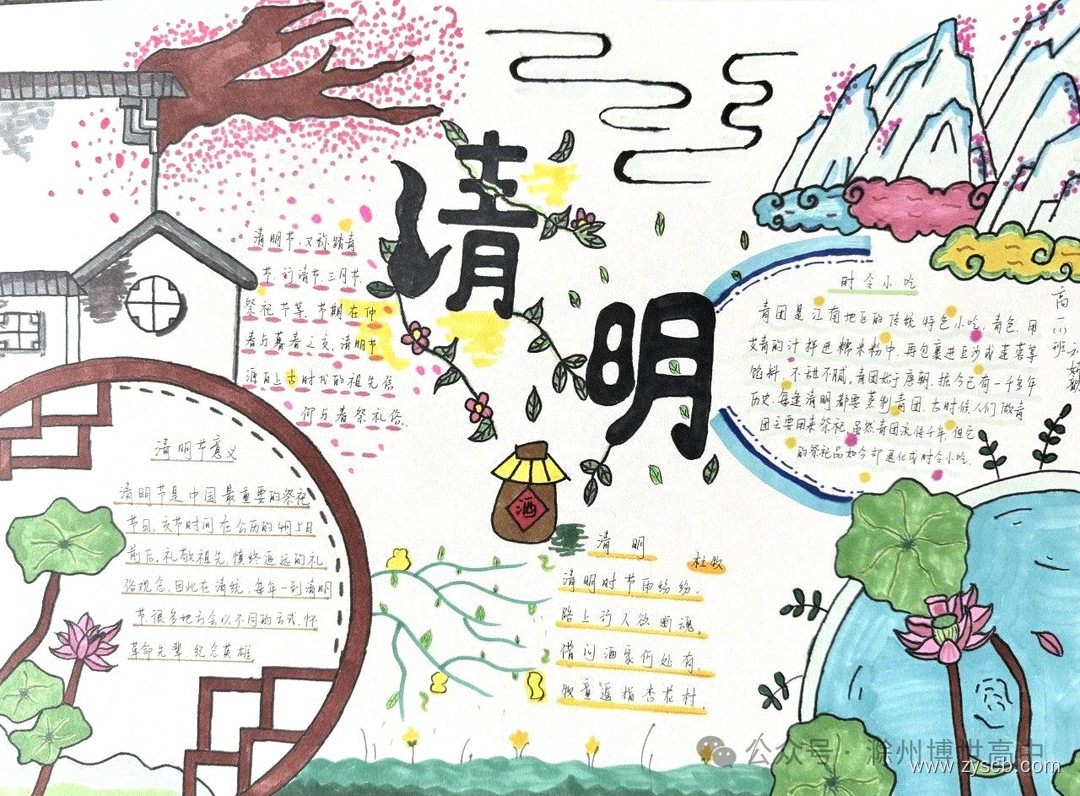 清明
清明节,又称踏青
节、行清节、三月节、
祭祀节等,节期在仲
春与暮春之交,清明节
源自上古时代的祖先信
仰与春祭礼俗.
时令小吃
青团是江南地区的传统特色小吃,青色,用
艾青的汁拌进糯米粉中,再包裹进豆沙或莲蓉等
馅料,不甜不腻,青团始于唐朝,据今已有一千多年
历史,每逢清明都要蒸制青团,古时候人们做青
团主要用来祭祀,虽然青团流传千年,但它
的祭祀品如今却退化成时令小吃.
高一
班
清明节意义
清明节是中国最重要的祭祀
节日,该节时间在公历的4月5日
前后,礼敬祖先,慎终追远的礼
俗观念,因此在传统,每年一到清明
节,很多地方会以不同的方式,怀
革命先辈,纪念英雄
酒
清明
杜牧
清明时节雨纷纷,
路上行人欲断魂,
借问酒家何处有,
牧童遥指杏花村,
公众号·滁州博世高中
www.zyscb.com